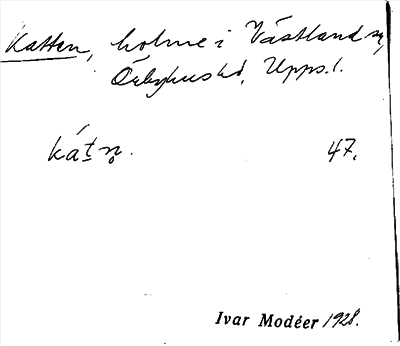 Katten, holme i Västland sn,
Örbyhus hd, Upps. l.
kát̠n̥. 47.
Ivar Modéer 1928.